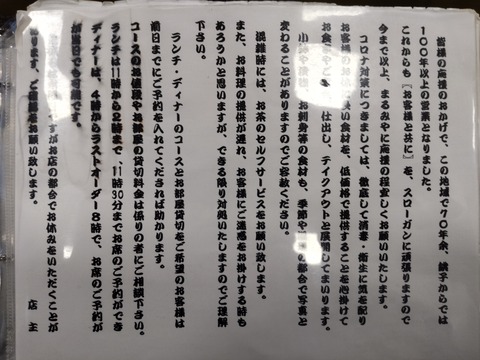 皆様の応援のおかげで、この地域で７０年余、銚子からでは
１００年以上の営業となりました。
これからも『お客様と共に』を、スローガンに頑張りますので
今まで以上、まるみやに応援の程宜しくお願いいたします。
コロナ対策につきましては、徹底して消毒・衛生に気を配り
お客様のお体に良い食材を、低価格で提供することを心掛けて
お食 仕出し、テイクアウトと展開してまいります。
小鉢や お刺身等の食材も、季節や 都合で写真と
変わることがありますのでご容赦ください。
混雑時には、お茶のセルフサービスをお願い致します。
また、お料理の提供が遅れ、お客様にご迷惑をお掛けする時も
あろうかと思いますが、できる限り対処いたしますのでご理解
下さい。
ランチ・ディナーのコースとお部屋貸切をご希望のお客様は
前日までにご予約を入れてくだされば助かります。
コースのお値段やお部屋の貸切料金は係りの者にご相談下さい。
ランチは１１時から２時まで、１１時３０分までお席のご予約ができ
ディナーは、４時からラストオーダー８時で、お席のご予約が
当日でも可能です。
すがお店の都合でお休みをいただくことが
あります、ご お願い致します。
店 主